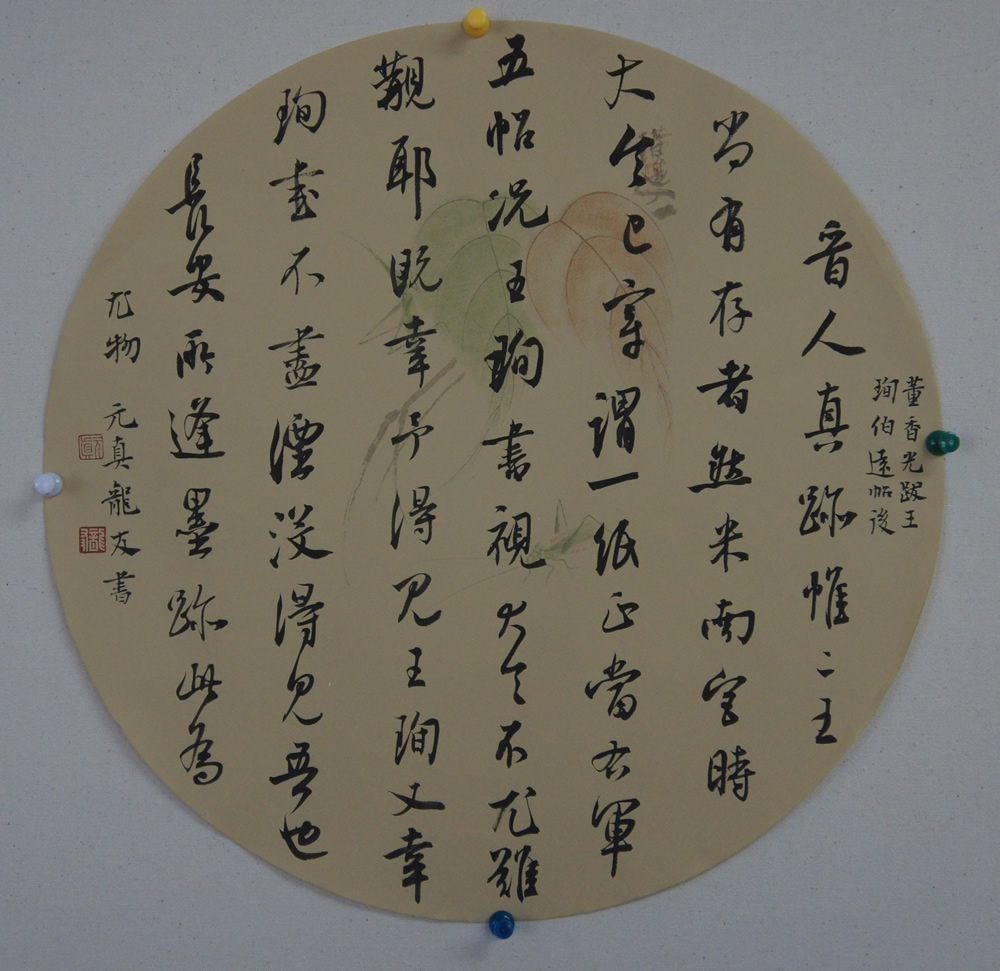 董香光跋王
珣伯遠帖後
晉人真跡惟二王
尚有存者然米南宮時
大令已罕謂一紙正當右軍
五帖況王珣書視大令不尤難
覯耶既幸予得見王珣又幸
珣書不盡湮沒得見吾也
長安所逢墨跡此為
尤物
元真龍友書